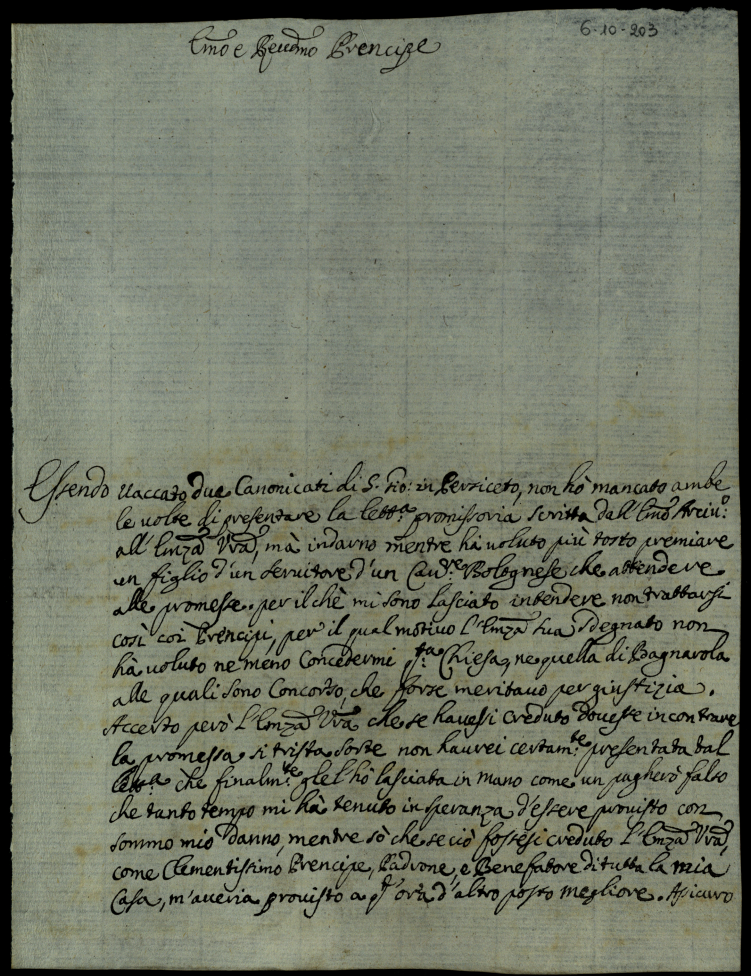 6-10-203
Emo e Reumo Prencipe
Essendo uaccato due Canonicati di S. Gio: in Persiceto, non hò mancato ambe
le uolte di presentare la lettra promissoria scritta dall'Emo Arciuo:
all'Emza Vra, mà indarno mentre hà uoluto più tosto premiare
un figlio d'un seruitore d'un Caure Bolognese che attendere
alle promesse. per il chè mi sono lasciato intendere non trattarsi
così coi Prencipi, per il qual motiuo l'Emza Sua sdegnato non
hà uoluto ne meno Concedermi qta Chiesa, ne quella di Bagnarola
alle quali sono Concorso, che forse meritauo per giustizia.
Accerto però l'Emza Vra che se hauessi creduto douesse incontrare
la promessa si trista sorte non haurei certamte presentata tal
lettra che finalmte glel'hò lasciata in mano come un pagherò falso
che tanto tempo mi hà tenuto in speranza d'essere prouisto con
sommo mio danno, mentre sò che se ciò fossesi creduto l'Emza Vra,
come Clementissimo Prencipe, Padrone, e Benefatore di tutta la mia
Casa, m'aueria prouisto a qt'ora d'altro posto megliore. Assicuro